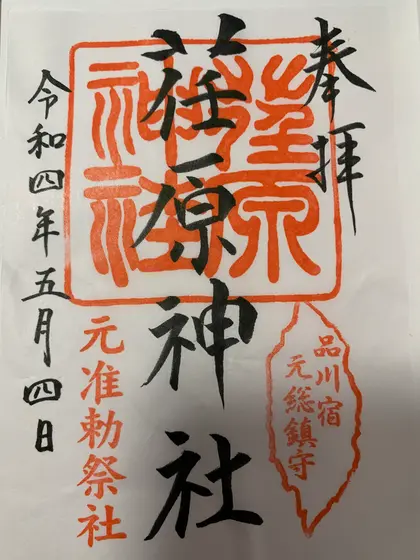 奉拝
荏原神社
品川宿
元総鎮守
元准勅祭社
令和四年五月四日